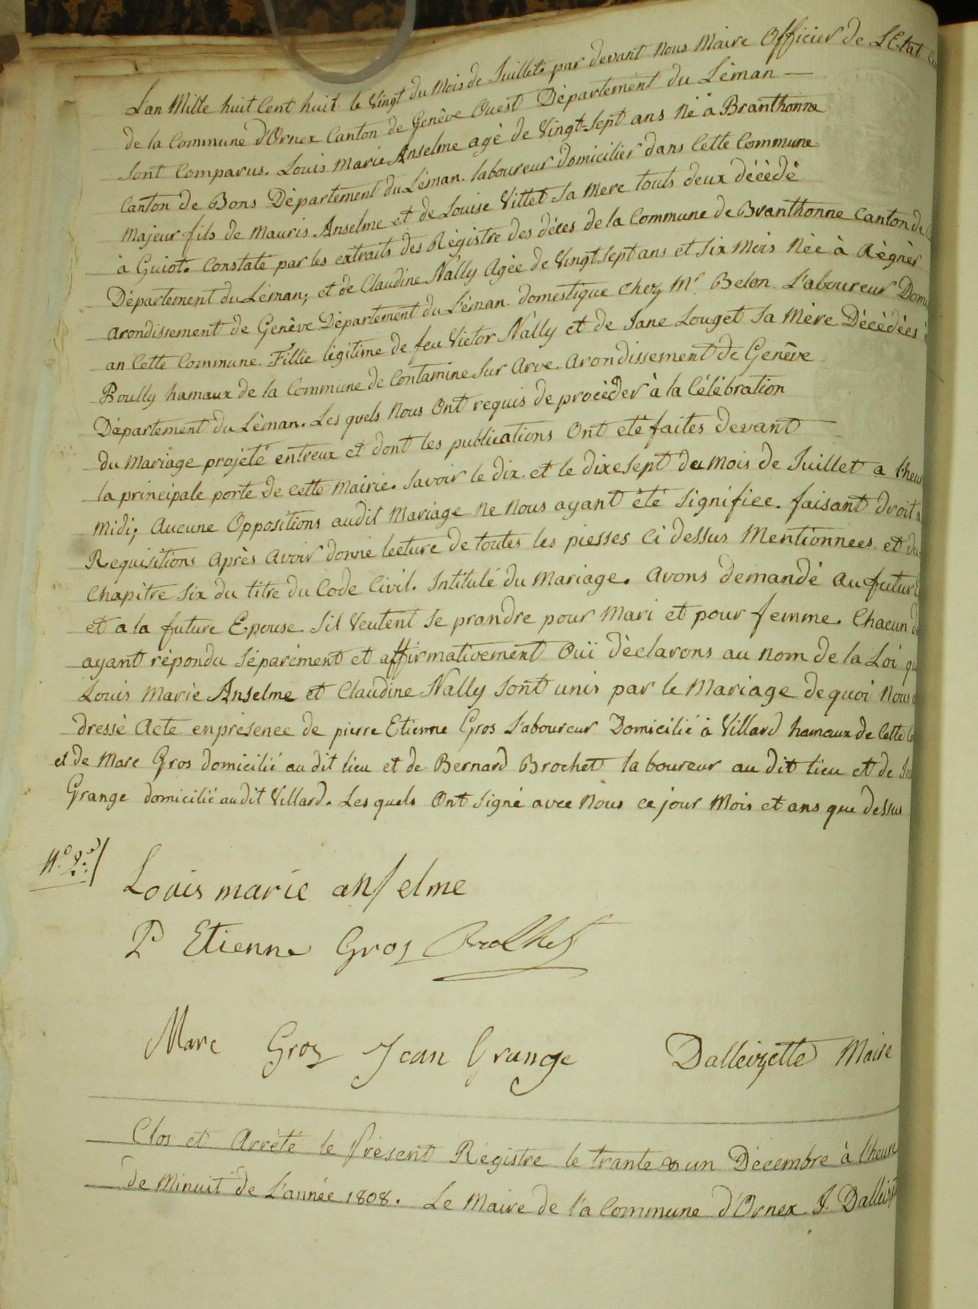 Lan Mille huit Cent huit le Vingt du Mois de Juillet. par devant nous Maire Officier de L'Etat
de la Commune d'Ornex Canton de Genêve Ouest Département du Léman —
Sont Comparus. Louis Marie Anselme agé de Vingt-Sept ans Né à Branthonne
Canton de Bons Département du Léman. laboureur domicilier dans Cette Commune
Majeur fils de Mauris Anselme et de Louise Vittet Sa Mere touts deux décèdé
à Guiot. Constate par les extraits des Régistre des déces de la Commune de Branthonne Canton de
Département du Léman; et de Claudine Nally Agée de Vingt Sept ans et Six Mois Née à Règnèr
arondissement de Genêve Département du Léman. domestique Chez Mr Belon L'aboureur
an Cette Commune. Fillie légitime de feu Victor Nally et de Jane Louget Sa Mère Décédées
Poully hamaux de la Commune de Contamine Sur Arve. arondissement de Genêve
Département du Léman. Les quels Nous Ont requis de procèder à la Célébration
du Mariage projeté entreux et dont les publications Ont été faites devant
la principale porte de cette Mairie. Savoir le dix et le dixe Sept du Mois de Juillet a
Midi; Aucune Oppositions audit Mariage Ne Nous ayant été Signifiée. faisant droit
Requisitions Après Avoir donné lecture de toutes les piesses Ci dessus Mentionnees et du
Chapitre Six du titre du Code Civil. Intitulé du Mariage. avons demandé au futur
et a la future Epouse. S'il Veulent Se prandre pour Mari et pour femme. Chacun
ayant répondu Séparément et affirmativement Ouï déclarons au nom de la Loi
Louis Marie Anselme et Claudine Nally Sont unis par le Mariage de quoi Nous
dressé Acte enprésence de pierre Etienne Gros L'aboureur Domicilié à Villard hamaux de Cette
et de Marc Gros domicilié au dit lieu et de Bernard Brochet laboureur au dit lieu et de
Grange domicilié audit Villard. Les quels Ont Signé avec Nous ce jour Mois et ans que dessus
Louis marie anselme
P Etienne Gros Brochet
Marc Gros Jean Grange Dalleizette Maire
Clos et Arrété le présent Régistre le trante & un Décembre à
de Minuit de L'année 1808. Le Maire de la Commune d'Ornex. J.